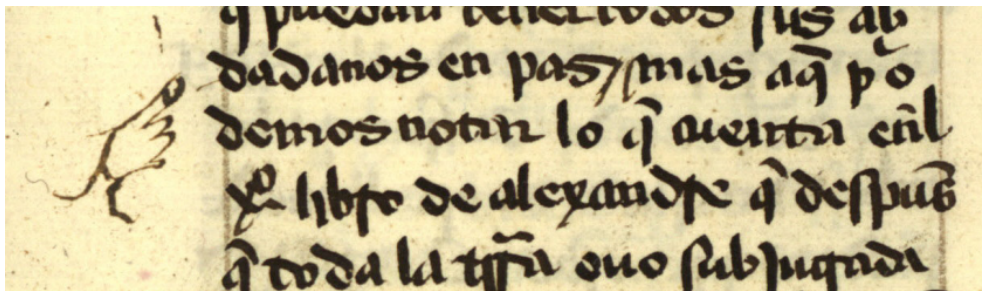 q̃ puedan tener todos sus ab
dadanos en pas / mas aq̃ po
demos notar lo q̃ cuenta enl
xº libro de alexandre q̃ despues
q̃ toda la trra ouo subjugada